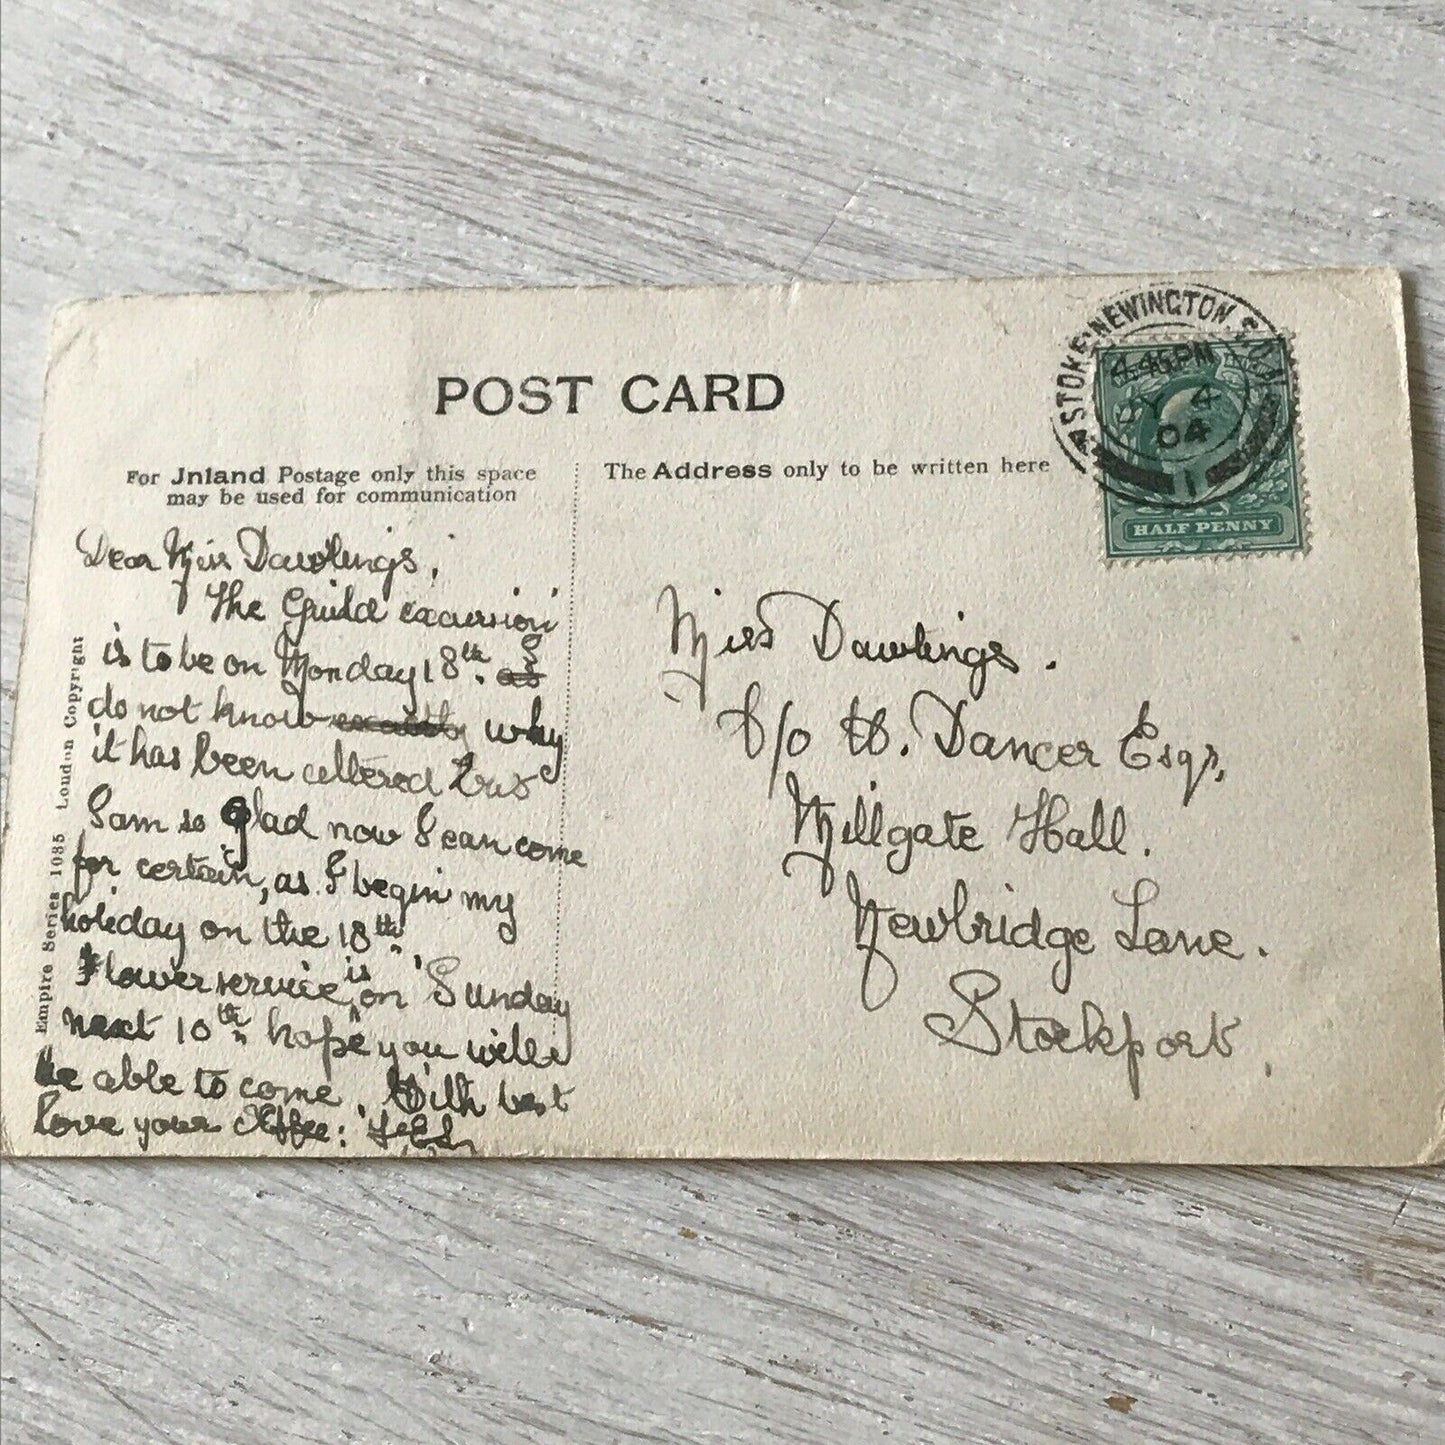 POST CARD
For Inland Postage only this space
may be used for communication
The Address only to be written here
STOKE NEWINGTON. S.O.
4.45 PM
JY 4
04
1
HALF PENNY
Empire Series 1085 London Copyright
Dear Miss Dawlings,
The Guild excursion
is to be on Monday 18th. as I
do not know exactly why
it has been altered but
I am so glad now I can come
for certain, as I begin my
holiday on the 18th
Flower service is on Sunday
next 10th hope you will
be able to come. With best
love your
Miss Dawlings.
C/o W. Dancer Esqr,
Millgate Hall.
Newbridge Lane.
Stockport,